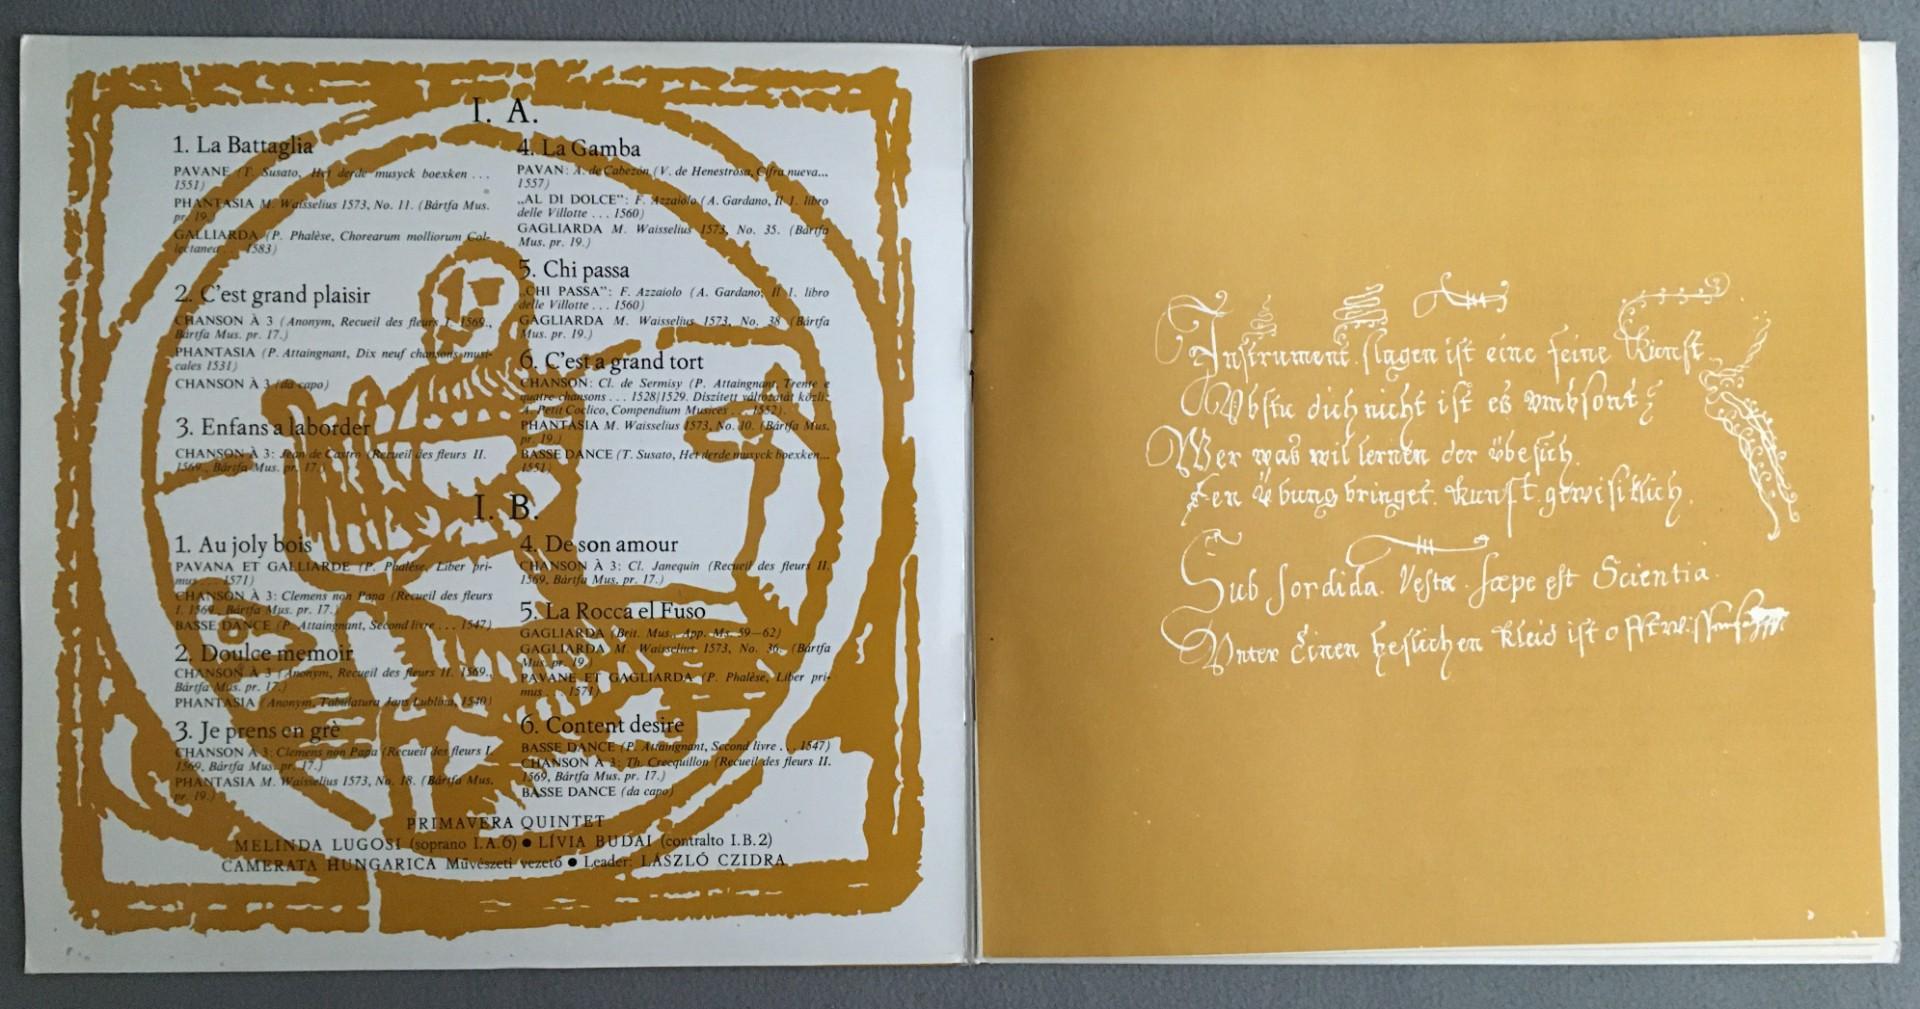 I. A.
1. La Battaglia
PAVANE (T. Susato, Het derde musyck boexken ...
1551)
PHANTASIA M. Waisselius 1573, No. 11. (Bártfa Mus.
pr. 19.)
GALLIARDA (P. Phalèse, Chorearum molliorum Col-
lectanea ... 1583)
2. C'est grand plaisir
CHANSON À 3 (Anonym, Recueil des fleurs I. 1569.,
Bártfa Mus. pr. 17.)
PHANTASIA (P. Attaingnant, Dix neuf chansons musi-
cales 1531)
CHANSON À 3 (da capo)
3. Enfans a laborder
CHANSON À 3: Jean de Castro (Recueil des fleurs II.
1569., Bártfa Mus. pr. 17.)
4. La Gamba
PAVAN: A. de Cabezón (V. de Henestrosa, Cifra nueva...
1557)
„AL DI DOLCE": F. Azzaiolo (A. Gardano, Il 1. libro
delle Villotte ... 1560)
GAGLIARDA M. Waisselius 1573, No. 35. (Bártfa
Mus. pr. 19.)
5. Chi passa
„CHI PASSA": F. Azzaiolo (A. Gardano, Il 1. libro
delle Villotte ... 1560)
GAGLIARDA M. Waisselius 1573, No. 38 (Bártfa
Mus. pr. 19.)
6. C'est a grand tort
CHANSON: Cl. de Sermisy (P. Attaingnant, Trente e
quatre chansons ... 1528/1529. Díszített változatát közli:
A. Petit Coclico, Compendium Musices ... 1552).
PHANTASIA M. Waisselius 1573, No. 10. (Bártfa Mus.
pr. 19.)
BASSE DANCE (T. Susato, Het derde musyck boexken...
1551)
I. B.
1. Au joly bois
PAVANA ET GALLIARDE (P. Phalèse, Liber pri-
mus ... 1571)
CHANSON À 3: Clemens non Papa (Recueil des fleurs
I. 1569., Bártfa Mus. pr. 17.)
BASSE DANCE (P. Attaingnant, Second livre ... 1547)
2. Doulce memoir
CHANSON À 3 (Anonym, Recueil des fleurs II. 1569.,
Bártfa Mus. pr. 17.)
PHANTASIA (Anonym, Tabulatura Jans Lublina, 1540)
3. Je prens en grè
CHANSON À 3: Clemens non Papa (Recueil des fleurs I.
1569, Bártfa Mus. pr. 17.)
PHANTASIA M. Waisselius 1573, No. 18. (Bártfa Mus.
pr. 19.)
4. De son amour
CHANSON À 3: Cl. Janequin (Recueil des fleurs II.
1569, Bártfa Mus. pr. 17.)
5. La Rocca el Fuso
GAGLIARDA (Brit. Mus., App. Ms. 59—62)
GAGLIARDA M. Waisselius 1573, No. 36. (Bártfa
Mus. pr. 19.)
PAVANE ET GAGLIARDA (P. Phalèse, Liber pri-
mus ... 1571)
6. Content desire
BASSE DANCE (P. Attaingnant, Second livre ... 1547)
CHANSON À 3: Th. Crecquillon (Recueil des fleurs II.
1569, Bártfa Mus. pr. 17.)
BASSE DANCE (da capo)
PRIMAVERA QUINTET
MELINDA LUGOSI (soprano I.A.6) ● LÍVIA BUDAI (contralto I.B.2)
CAMERATA HUNGARICA Művészeti vezető ● Leader: LÁSZLÓ CZIDRA
Instrument slagen ist eine feine Kienst
Vbstu dich nicht ist es vmbsont
Wer was wil lernen der vbe sich.
Den Übung bringet kunst gewisilich.
Sub sordida Vesta sæpe est Scientia.
Vnter Einen heslichen Kleid ist offt